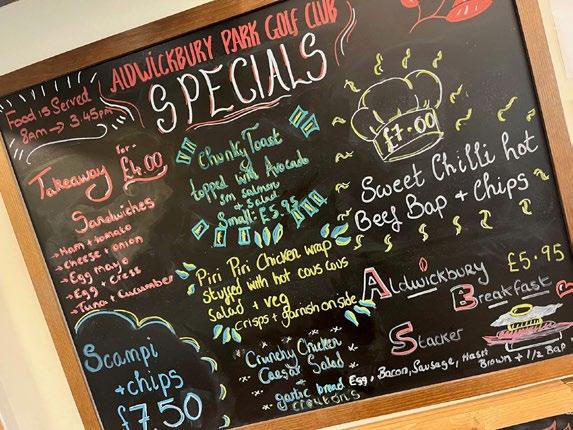 ALDWICKBURY PARK GOLF CLUB
SPECIALS
Food is Served
8am → 3.45pm
Takeaway for £4.00
Sandwiches
→ Ham + tomato
→ Cheese + onion
→ Egg mayo
→ Egg + Cress
→ Tuna + Cucumber
Scampi
+ chips
£7.50
Chunky Toast
topped with Avocado
Sm Salmon
+ Salad
Small: £5.95
Piri Piri Chicken wrap
stuffed with hot cous cous
Salad + veg
crisps + garnish on side
Crunchy Chicken
Caesar Salad
+
garlic bread
Croutons
£7.00
Sweet Chilli hot
Beef Bap + Chips
Aldwickbury £5.95
Breakfast
Stacker
Egg, Bacon, Sausage, Hash
Brown + 1/2 Bap